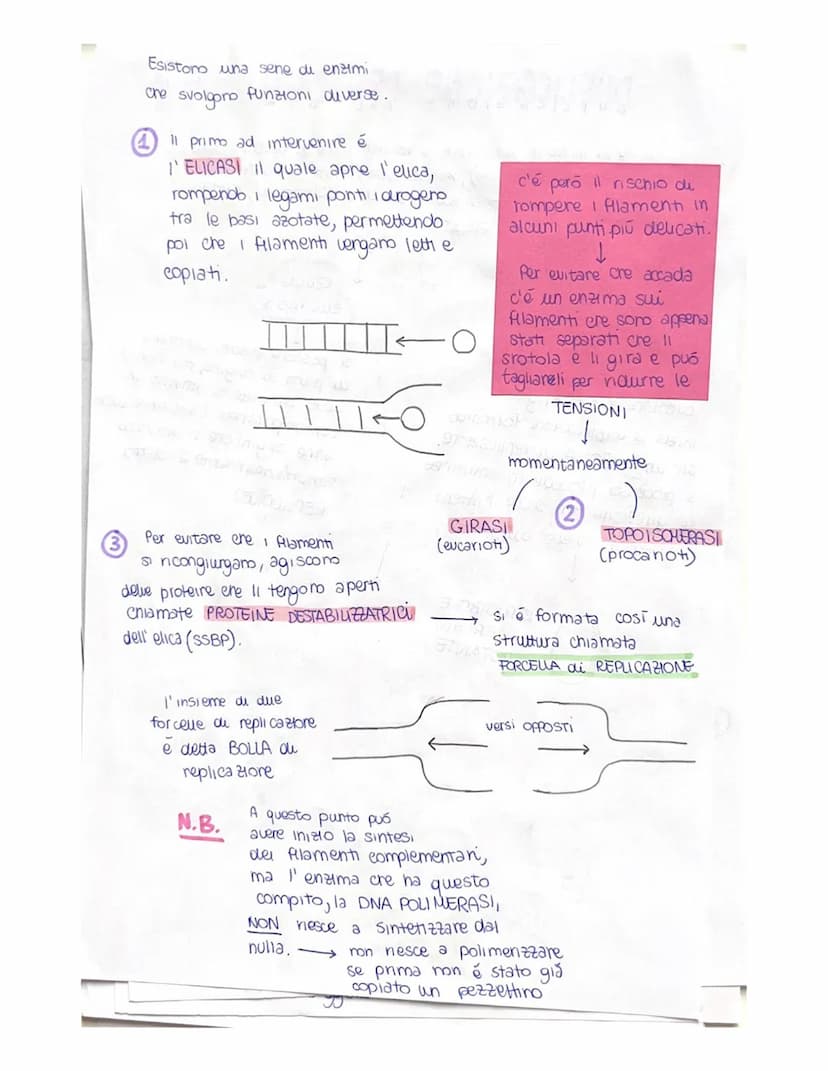 Esistono una serie di enzimi
che svolgono funzioni diverse.
1 Il primo ad intervenire é
l'ELICASI il quale apre l'elica,
rompendo i legami ponti idrogeno
tra le basi azotate, permettendo
poi che i filamenti vengano letti e
copiati.
c'é peró il rischio di
rompere i filamenti in
alcuni punti piú delicati.
↓
Per evitare che accada
c'é un enzima sui
filamenti che sono appena
stati separati che li
srotola e li gira e puó
tagliareli per ridurre le
TENSIONI
↓
momentaneamente
2
GIRASI
(eucarioti)
TOPOISOMERASI
(procarioti)
3 Per evitare che i filamenti
si ricongiungano, agiscono
delle proteine che li tengono aperti
chiamate PROTEINE DESTABILIZZATRICI
dell'elica (SSBP).
→ si é formata cosí una
struttura chiamata
FORCELLA di REPLICAZIONE
l'insieme di due
forcelle di replicazione
é detta BOLLA di
replicazione
versi OPPOSTI
N.B. A questo punto puó
avere inizio la sintesi
dei filamenti complementari,
ma l'enzima che ha questo
compito, la DNA POLIMERASI,
NON riesce a sintetizzare dal
nulla. → non riesce a polimerizzare
se prima non é stato giá
copiato un pezzettino